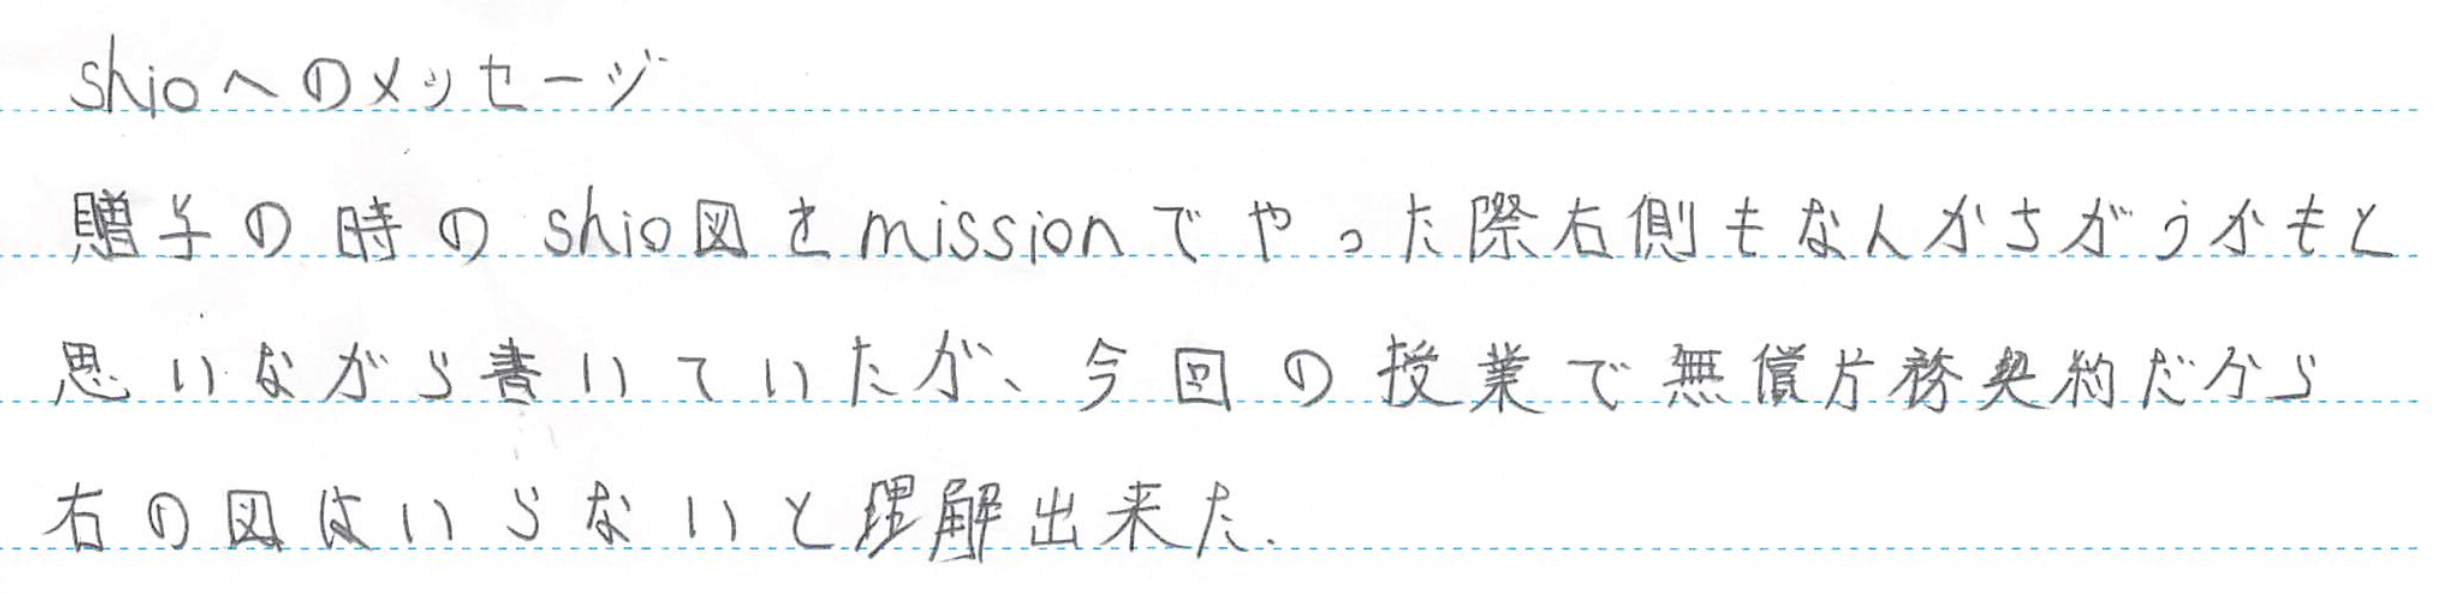 shioへのメッセージ
贈与の時のshio図をmissionでやった際右側もなんかちがうかもと
思いながら書いていたが、今回の授業で無償片務契約だから
右の図はいらないと理解出来た.